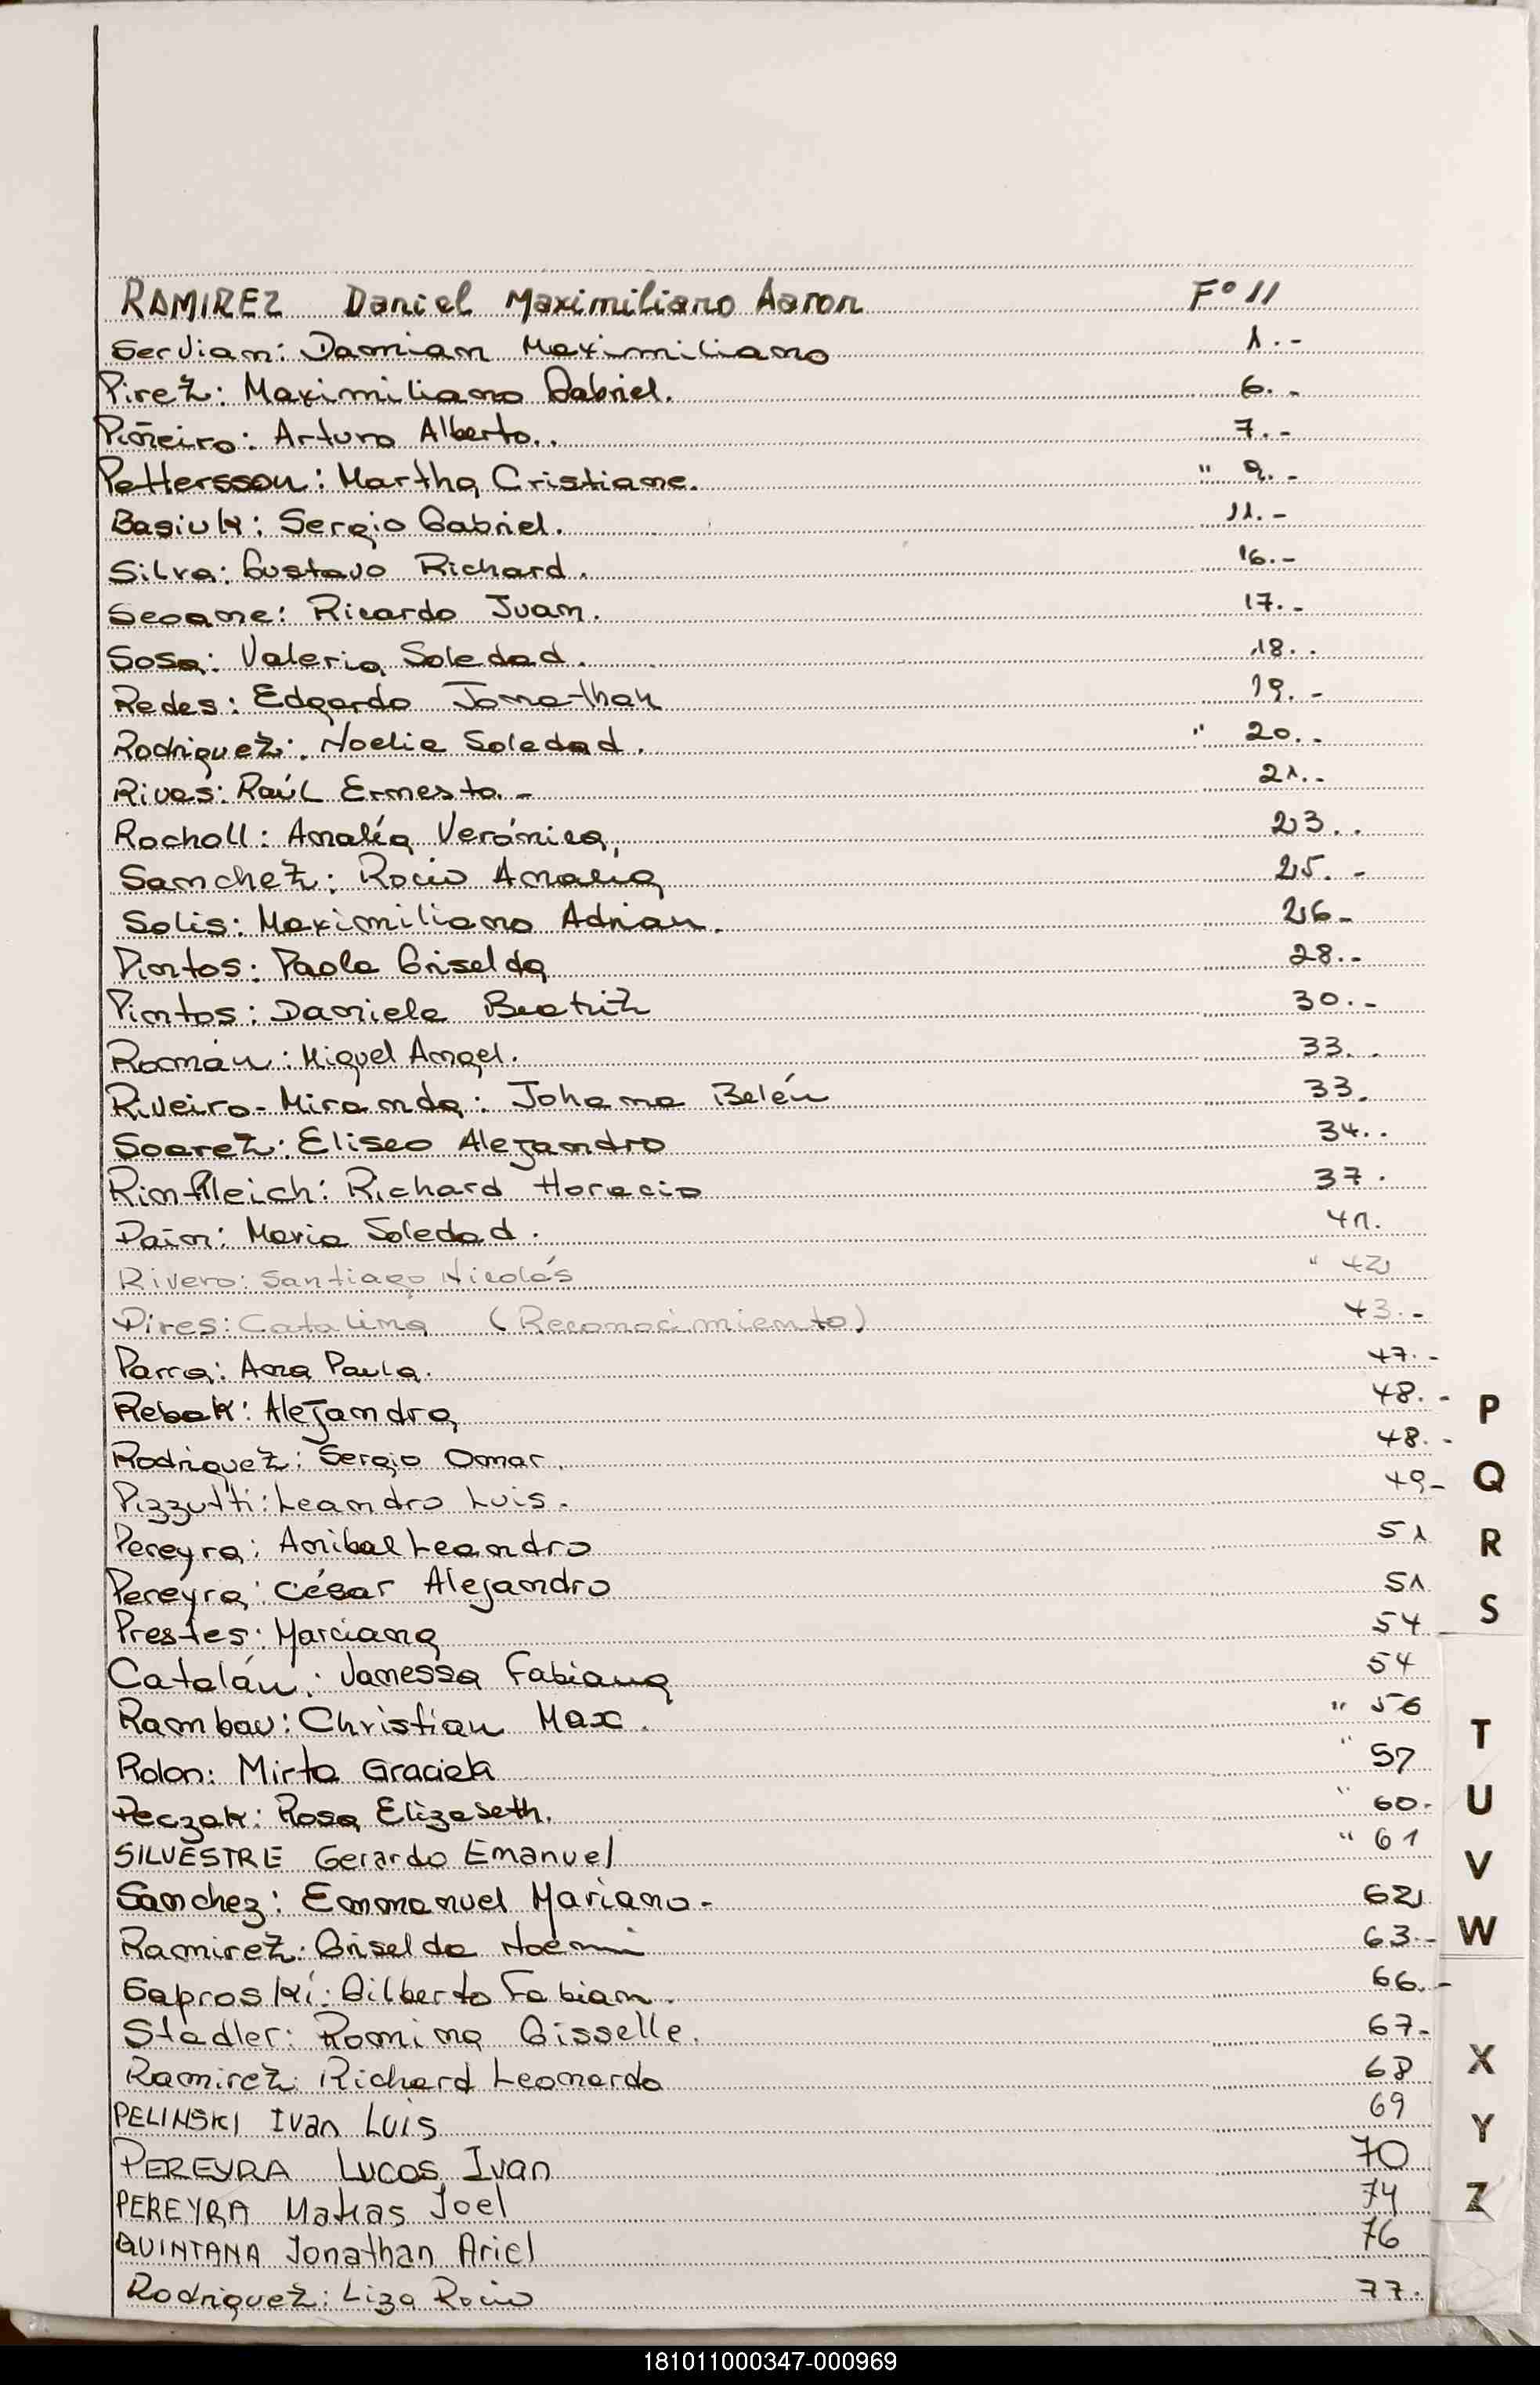 RAMIREZ Daniel Maximiliano Aaron Fº 11
Servian: Damian Maximiliano 1.-
Pirez: Maximiliano Gabriel. 6.-
Piñeiro: Arturo Alberto.. 7.-
Pettersson: Martha Cristiane. " 9.-
Basiuk: Sergio Gabriel. 11.-
Silva: Gustavo Richard. 16.-
Seoane: Ricardo Juan. 17.-
Sosa: Valeria Soledad. 18..
Redes: Edgardo Jonathan 19.-
Rodriguez: Noelia Soledad. " 20..
Rivas: Raúl Ernesto.- 21.-
Rocholl: Analía Verónica, 23..
Sanchez: Rocio Analia 25.-
Solis: Maximiliano Adrian. 26-
Pintos: Paola Griselda 28.-
Pintos: Daniela Beatriz 30.-
Román: Miguel Angel. 33..
Riveiro-Miranda: Johana Belén 33.
Soarez: Eliseo Alejandro 34..
Rintlleich: Richard Horacio 37.
Pain: Maria Soledad. 41.
Rivero: Santiago Nicolás " 42
Pires: Catalina (Reconocimiento) 43.-
Parra: Ana Paula. 47.-
Rebak: Alejandra 48.-
Rodriguez: Sergio Omar. 48.-
Pizzutti: Leandro Luis. 49-
Pereyra: Anibal Leandro 51
Pereyra: César Alejandro 51
Prestes: Marciana 54
Catalán: Vanessa Fabiana 54
Rambau: Christian Max. " 56
Rolon: Mirta Graciela " 57
Peczak: Rosa Elizabeth. " 60-
SILVESTRE Gerardo Emanuel " 61
Sanchez: Emmanuel Mariano- 62
Ramirez: Griselda Noemi 63.-
Saproski: Gilberto Fabian. 66.-
Stadler: Romina Gisselle. 67-
Ramirez: Richard Leonardo 68
PELINSKI Ivan Luis 69
PEREYRA Lucas Ivan 70
PEREYRA Matias Joel 74
QUINTANA Jonathan Ariel 76
Rodriguez: Liza Rocio 77.
P
Q
R
S
T
U
V
W
X
Y
Z
181011000347-000969